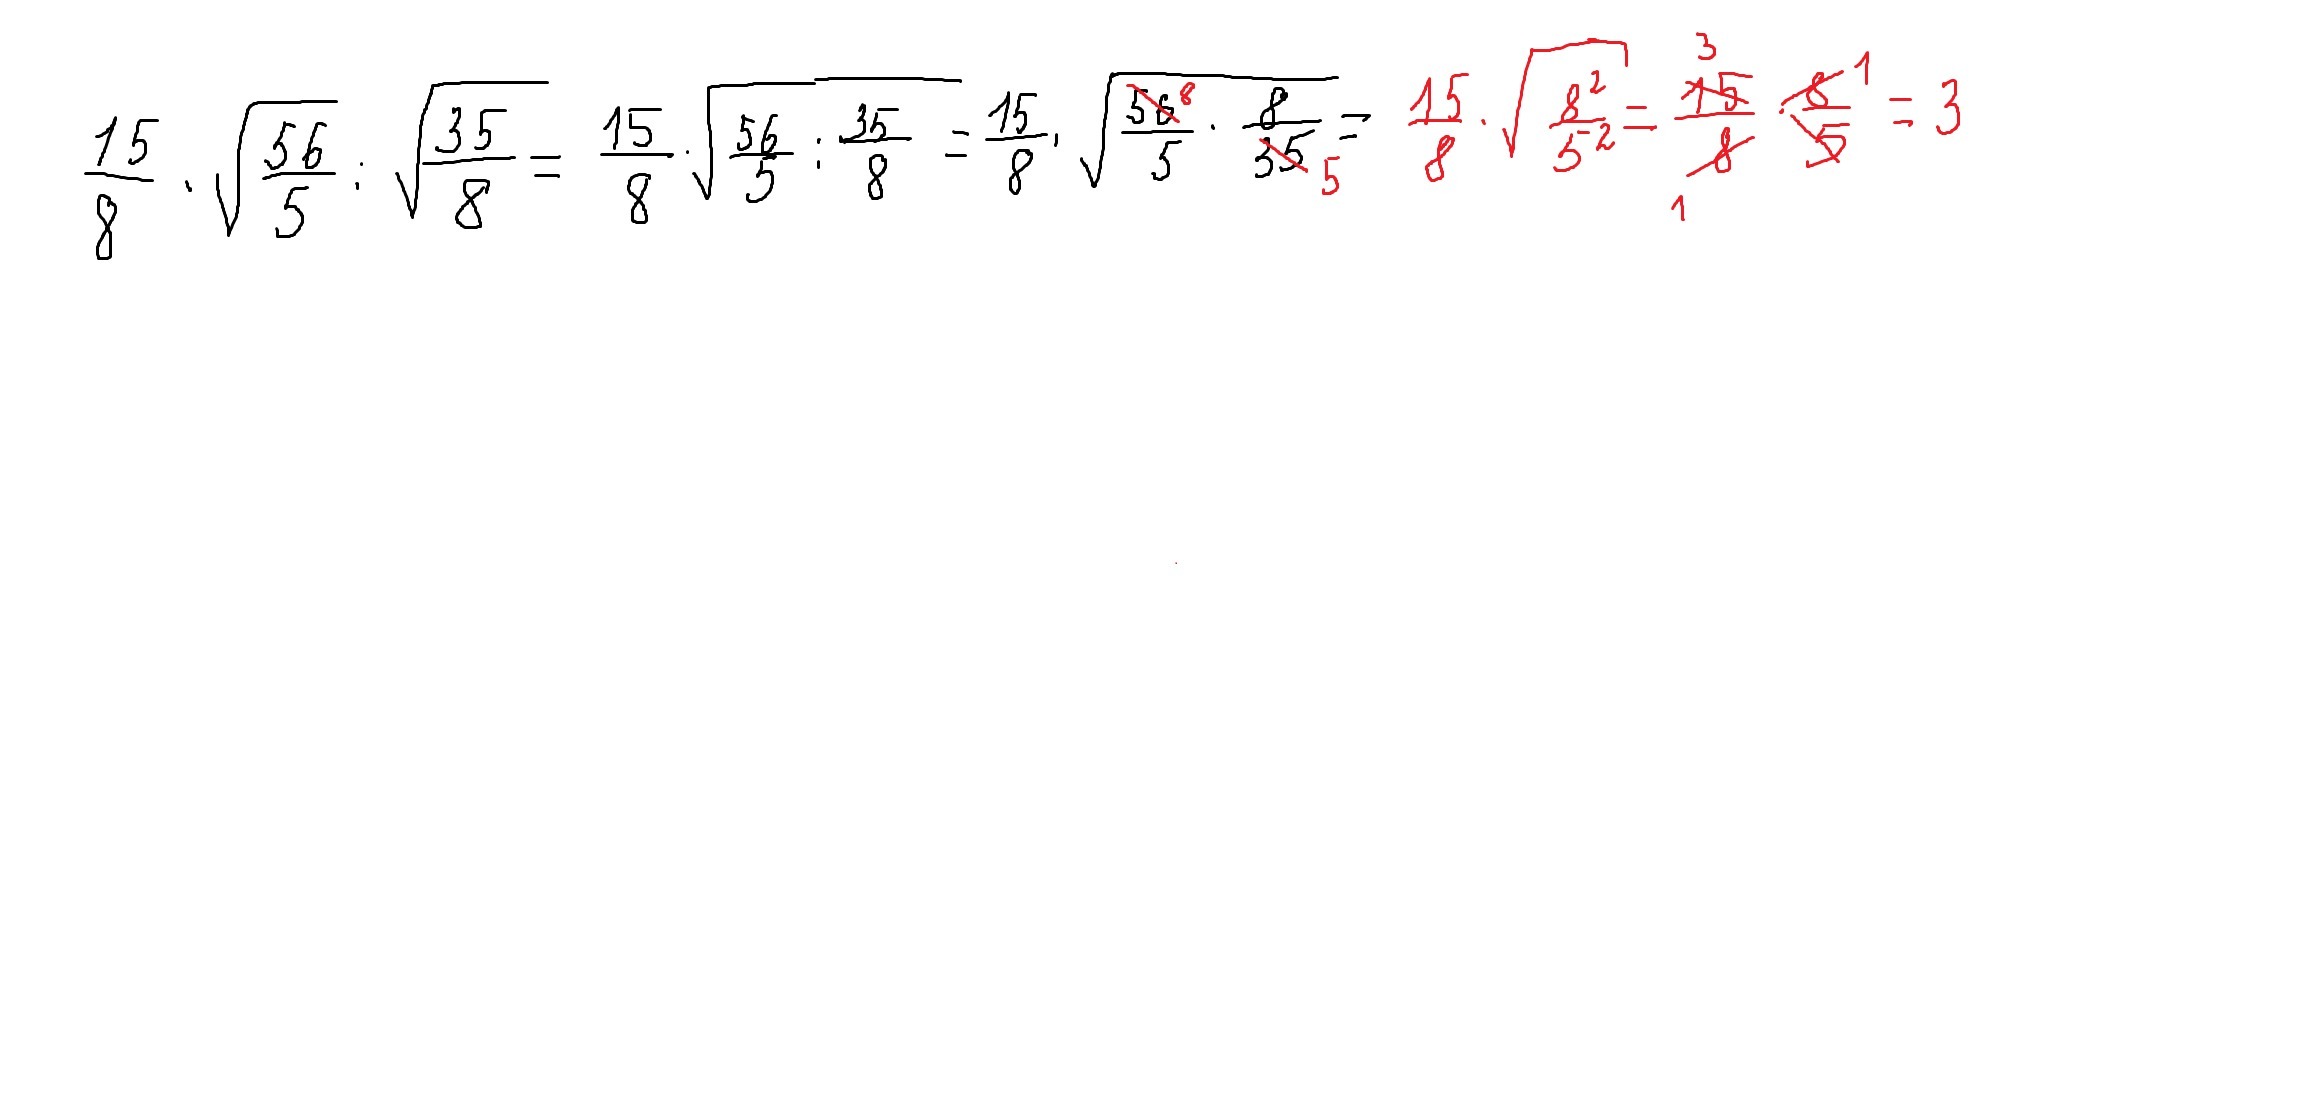 15/8 · √(56/5) : √(35/8) = 15/8 · √(56/5 : 35/8) = 15/8 · √(56 8/5 · 8/35 5) = 15/8 · √(8²/5²) = 3 15/8 1 · 8 1/5 = 3